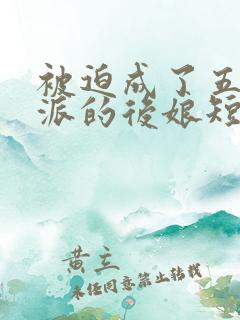 被迫成了五
派的後娘短
黄立
未任同意禁止转载